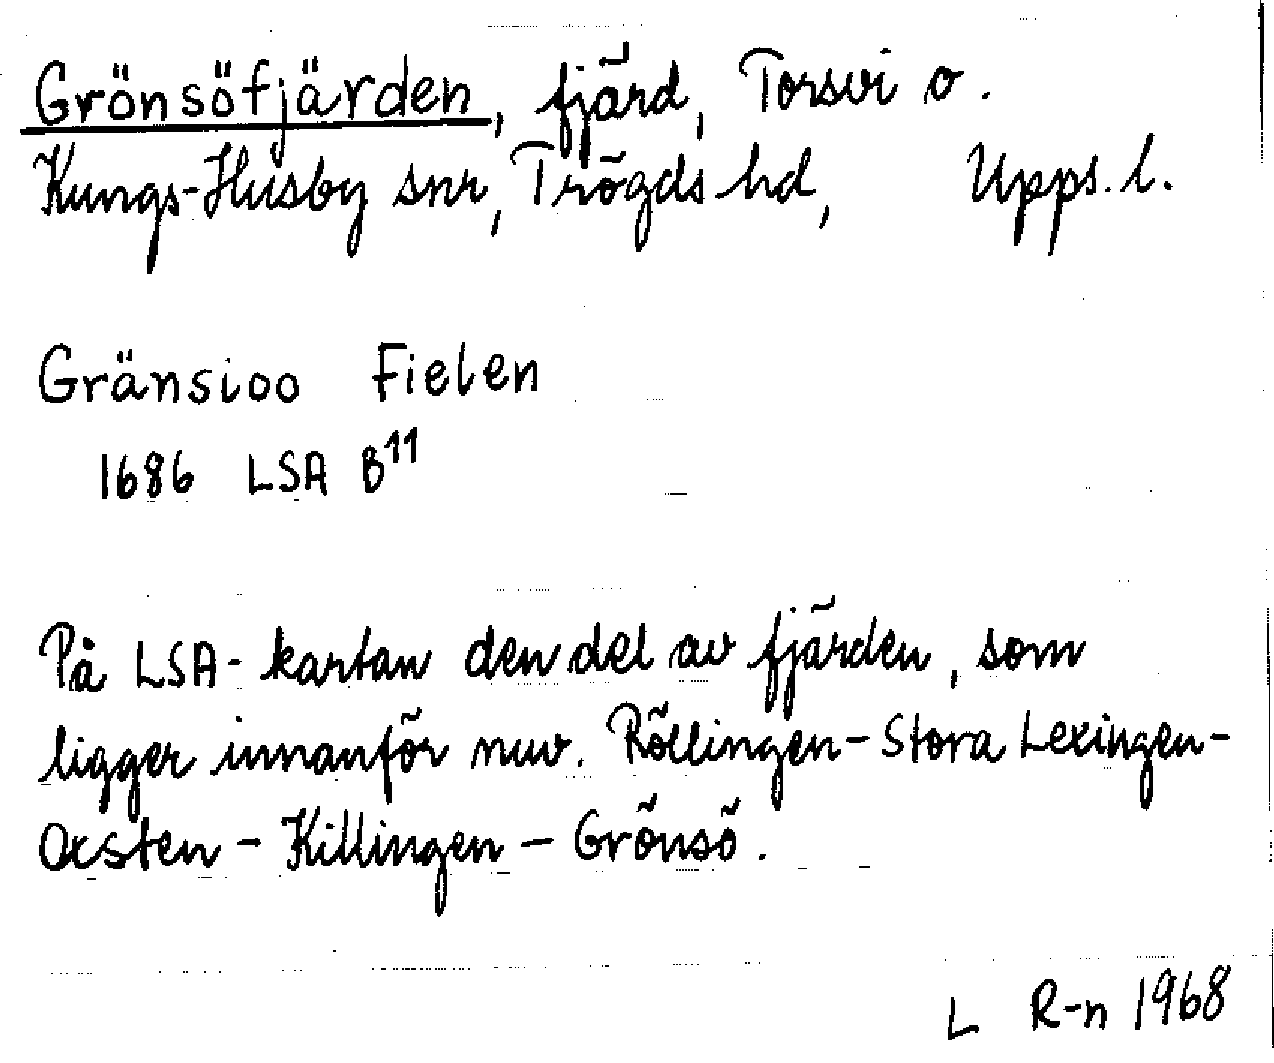 Grönsöfjärden, fjärd, Torsvi o.
Kungs-Husby snr, Trögds hd, Upps. l.
Gränsioo Fielen
1686 LSA B¹¹
På LSA-kartan den del av fjärden, som
ligger innanför nuv. Röllingen - Stora Lexingen -
Oxsten - Killingen - Grönsö.
L R-n 1968